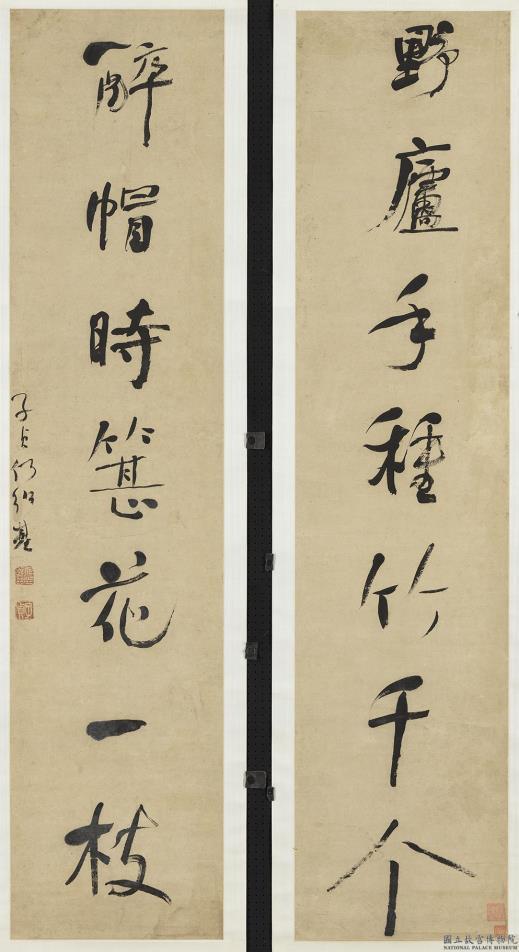 野廬手種竹千个
醉帽時簪花一枝
子貞何紹基
國立故宮博物院
NATIONAL PALACE MUSEUM